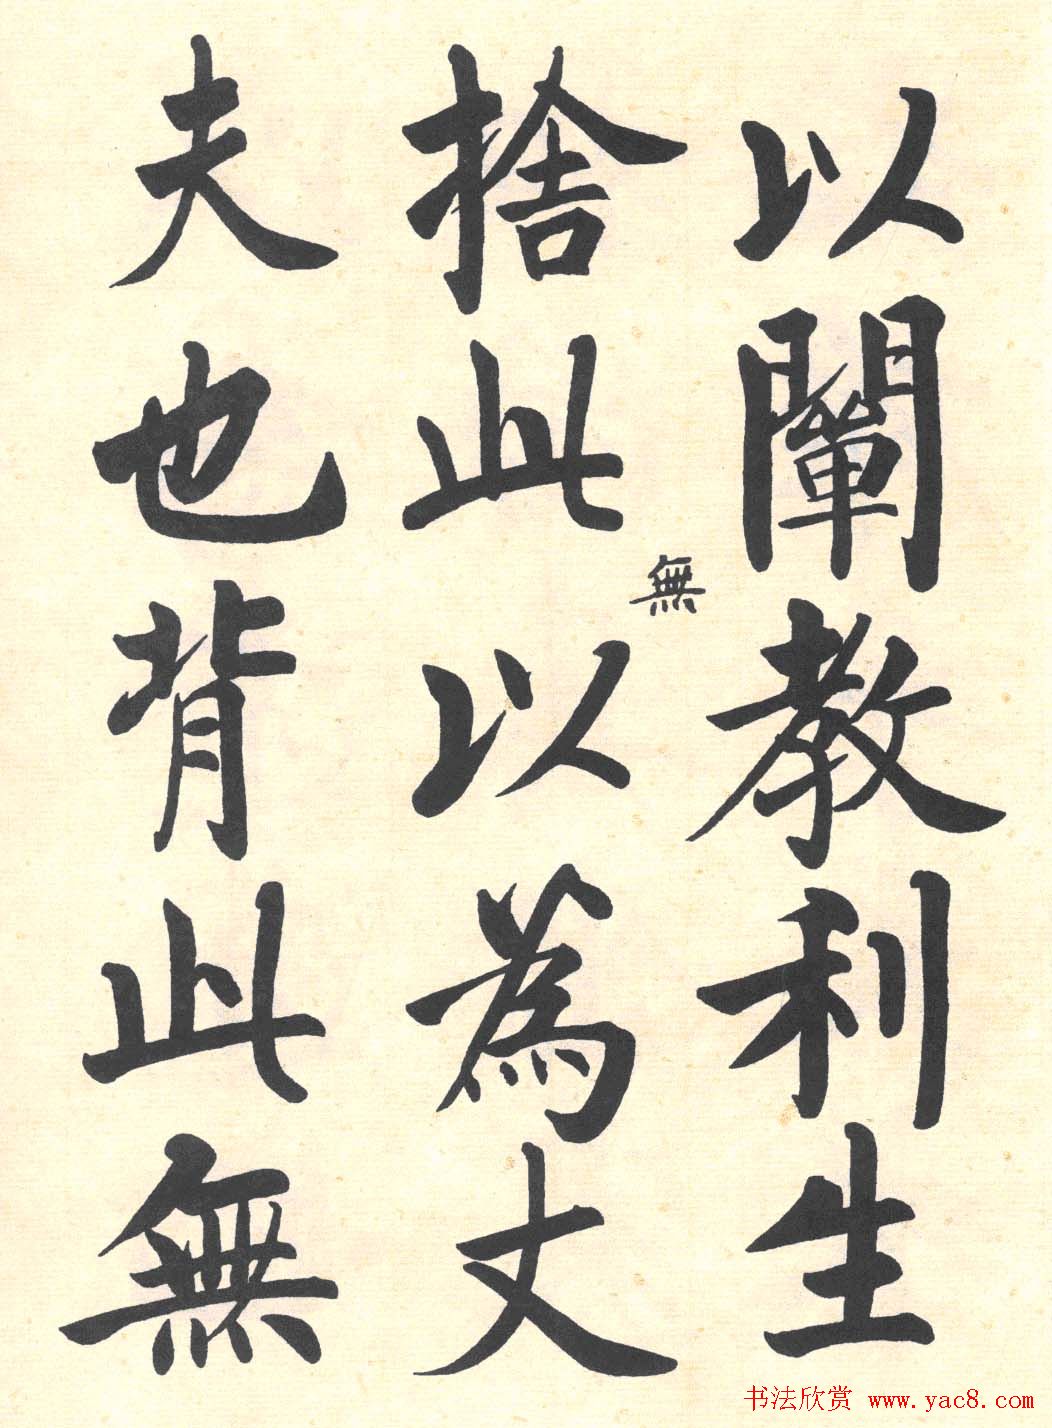 以闡教利生
捨此無以為丈
夫也背此無
书法欣赏 www.yac8.com